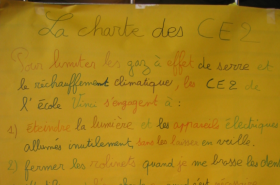 La charte des CE2
Pour limiter les gaz à effet de serre et
le réchauffement climatique, les CE2 de
l'école s'engagent à :
1) éteindre la lumière et les appareils électriques
allumés inutilement, sans les laisser en veille.
2) fermer les robinets quand je me brosse les dents